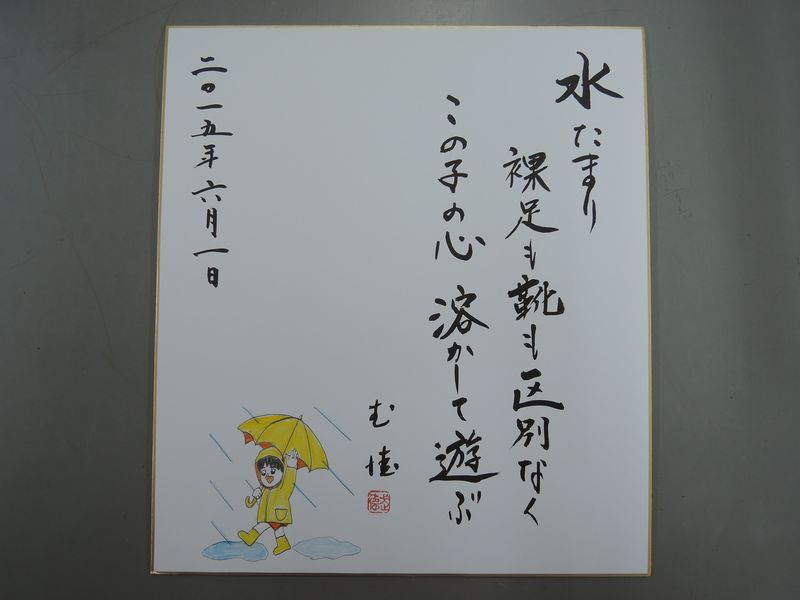 水たまり
裸足も靴も区別なく
この子の心 溶かして遊ぶ
二〇一五年六月一日